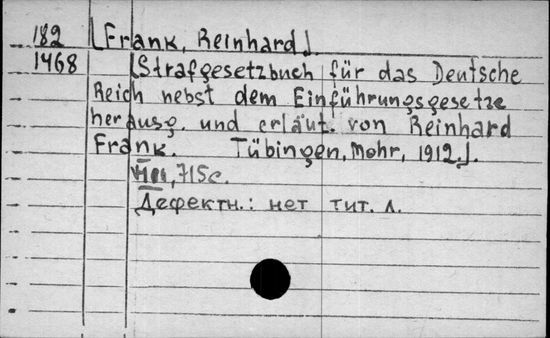 182 [Frank, Reinhard]
1468 [Strafgesetzbuch für das Deutsche
Reich nebst dem Einführungsgesetze
herausg. und erläut. von Reinhard
Frank. Tübingen, Mohr, 1912.].
715с.
Дефектн.: нет тит. л.